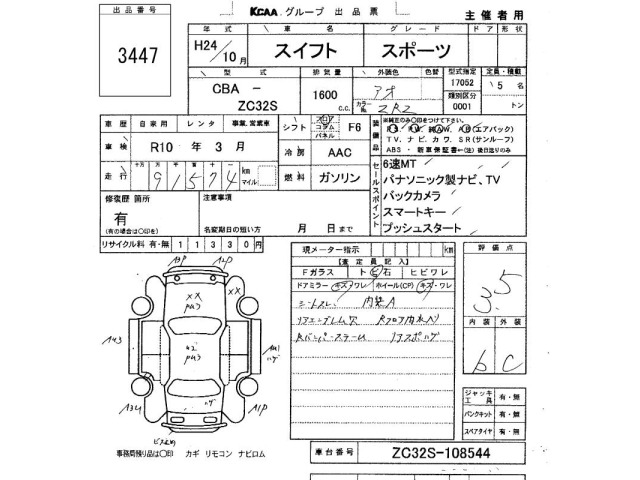 出品番号
3447
KCAA グループ 出品票
主催者用
年式 車名 グレード ドア 形状
H24/10月 スイフト スポーツ
型式 排気量 外装色 色替 型式指定 定員・積載
CBA - ZC32S 1600 C.C. アオ カラーNo. ZRZ 17052 類別区分 0001 5名 トン
車歴 自家用 レンタ 事業、営業車 シフト フロア コラム パネル F6
車検 R10年3月 冷房 AAC
走行 十万 万 千 百 十 91574km マイル 燃料 ガソリン
装備品 ※純正のみ○印をつけて下さい。
P.S、P.W、純AW、AB(エアバック)
TV、ナビ、カワ、SR(サンルーフ)
ABS・新車保証書←(注)後日送りのみ
セールスポイント
6速MT
パナソニック製ナビ、TV
バックカメラ
スマートキー
プッシュスタート
修復歴 箇所
有
(有の場合は○印を)
注意事項
名変期日の短い方 月 日まで
リサイクル料 有・無 11330円
現メーター指示 km
【査定員記入】
Fガラス トビ石 ヒビワレ
ドアミラー キズ・ワレ ホイール(CP) キズ・ワレ
シートスレ 内装A
リアエンブレム穴 Rフロア内
Rバンパーステーム
評価点
3.5
内装 外装
b C
ジャッキ工具 有・無
パンクキット 有・無
スペアタイヤ 有・無
XX
A2
事務局預り品は○印 カギ リモコン ナビロム
車台番号 ZC32S-108544